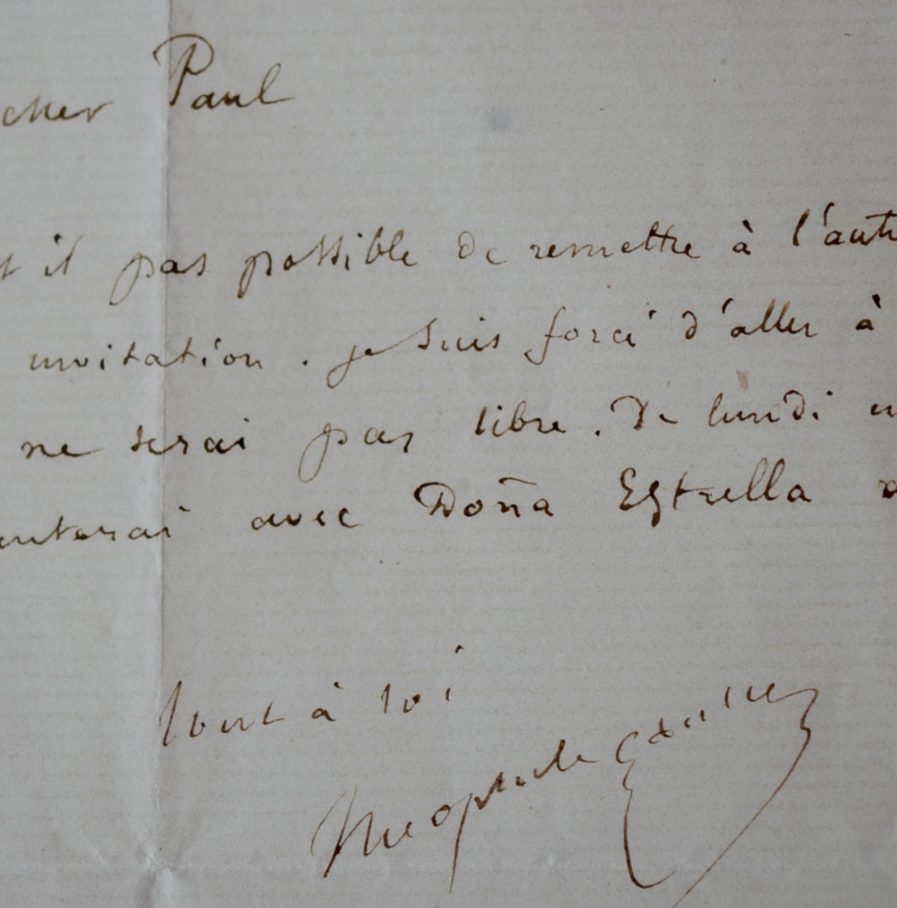 cher Paul
t il pas possible de remettre à l'aut
invitation. je suis forcé d'aller à
ne serai pas libre. De lundi en
nterai avec Doña Estrella
tout à toi
Theophile Gautier